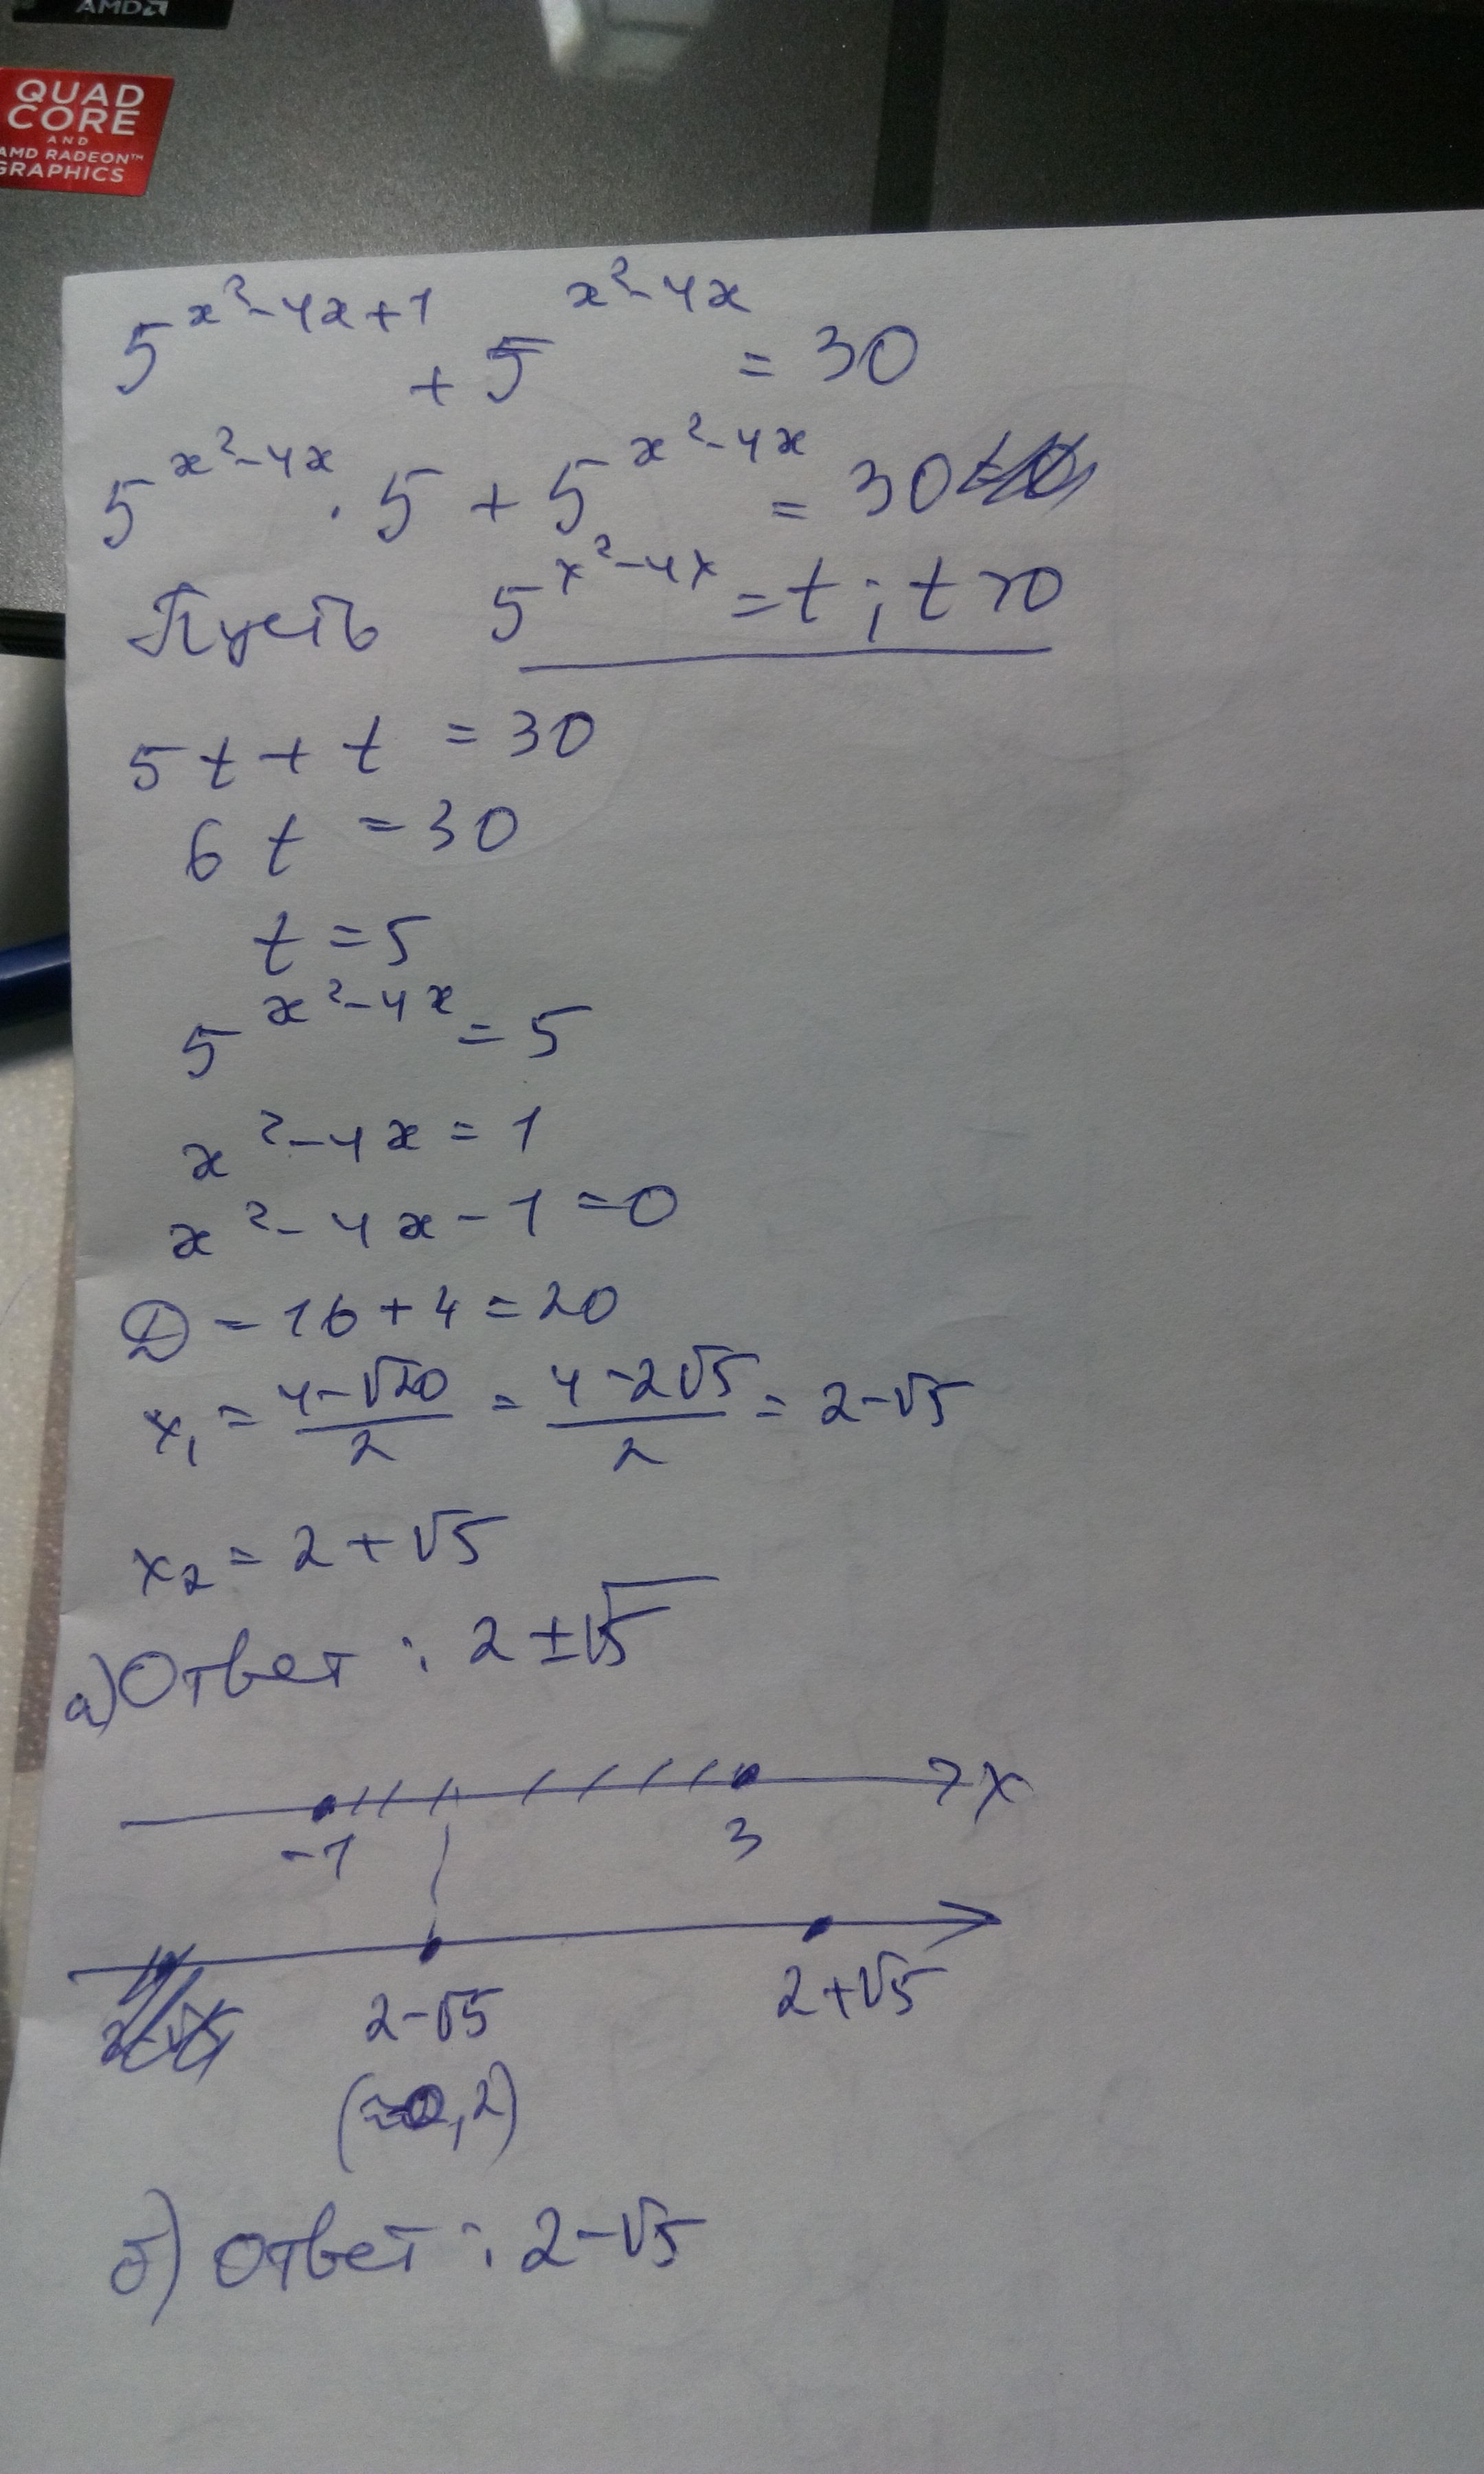 AMD
QUAD
CORE
AND
AMD RADEON™
GRAPHICS
5^{x²-4x+1} + 5^{x²-4x} = 30
5^{x²-4x} · 5 + 5^{x²-4x} = 30
Пусть 5^{x²-4x} = t ; t > 0
5t + t = 30
6t = 30
t = 5
5^{x²-4x} = 5
x²-4x = 1
x²-4x-1=0
D = 16+4=20
x₁ = (4-√20)/2 = (4-2√5)/2 = 2-√5
x₂ = 2+√5
а) Ответ : 2±√5
x
-1 3
2-√5 2+√5
б) Ответ : 2-√5